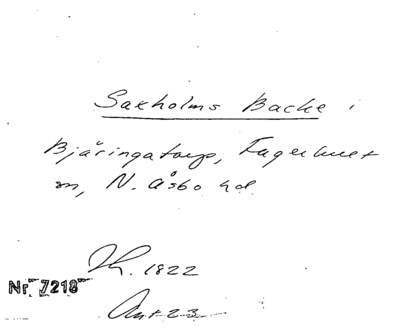 Saxholms Backe i
Bjäringatorp, Fagerhult
sn, N. Åsbo hd.
Th. 1822
Nr. 7218
Ant 23